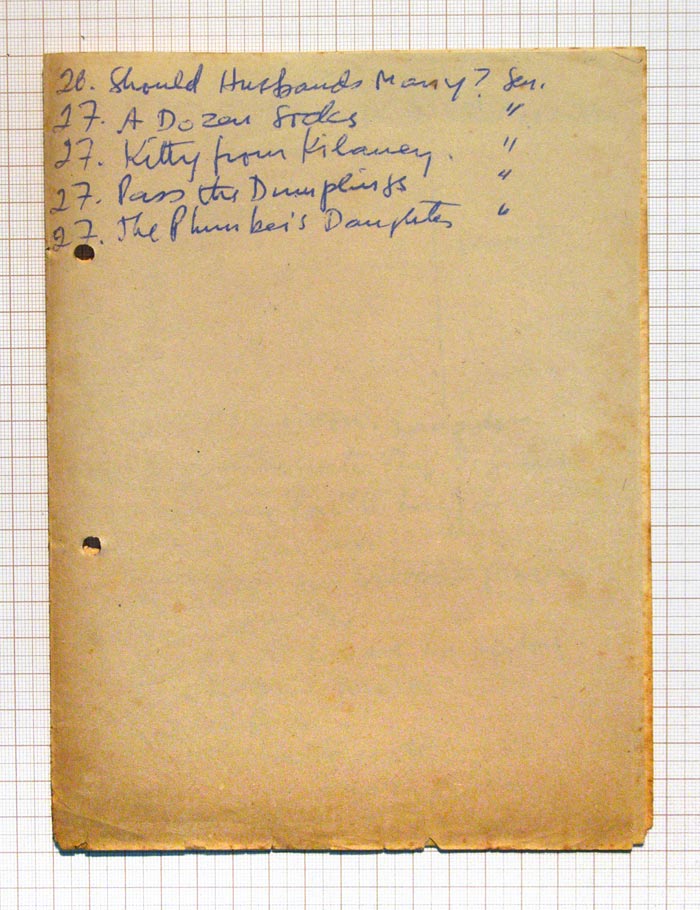 26. Should Husbands Marry? Sen.
27. A Dozen Socks "
27. Kitty from Kilarney. "
27. Pass the Dumplings "
27. The Plumber's Daughter "